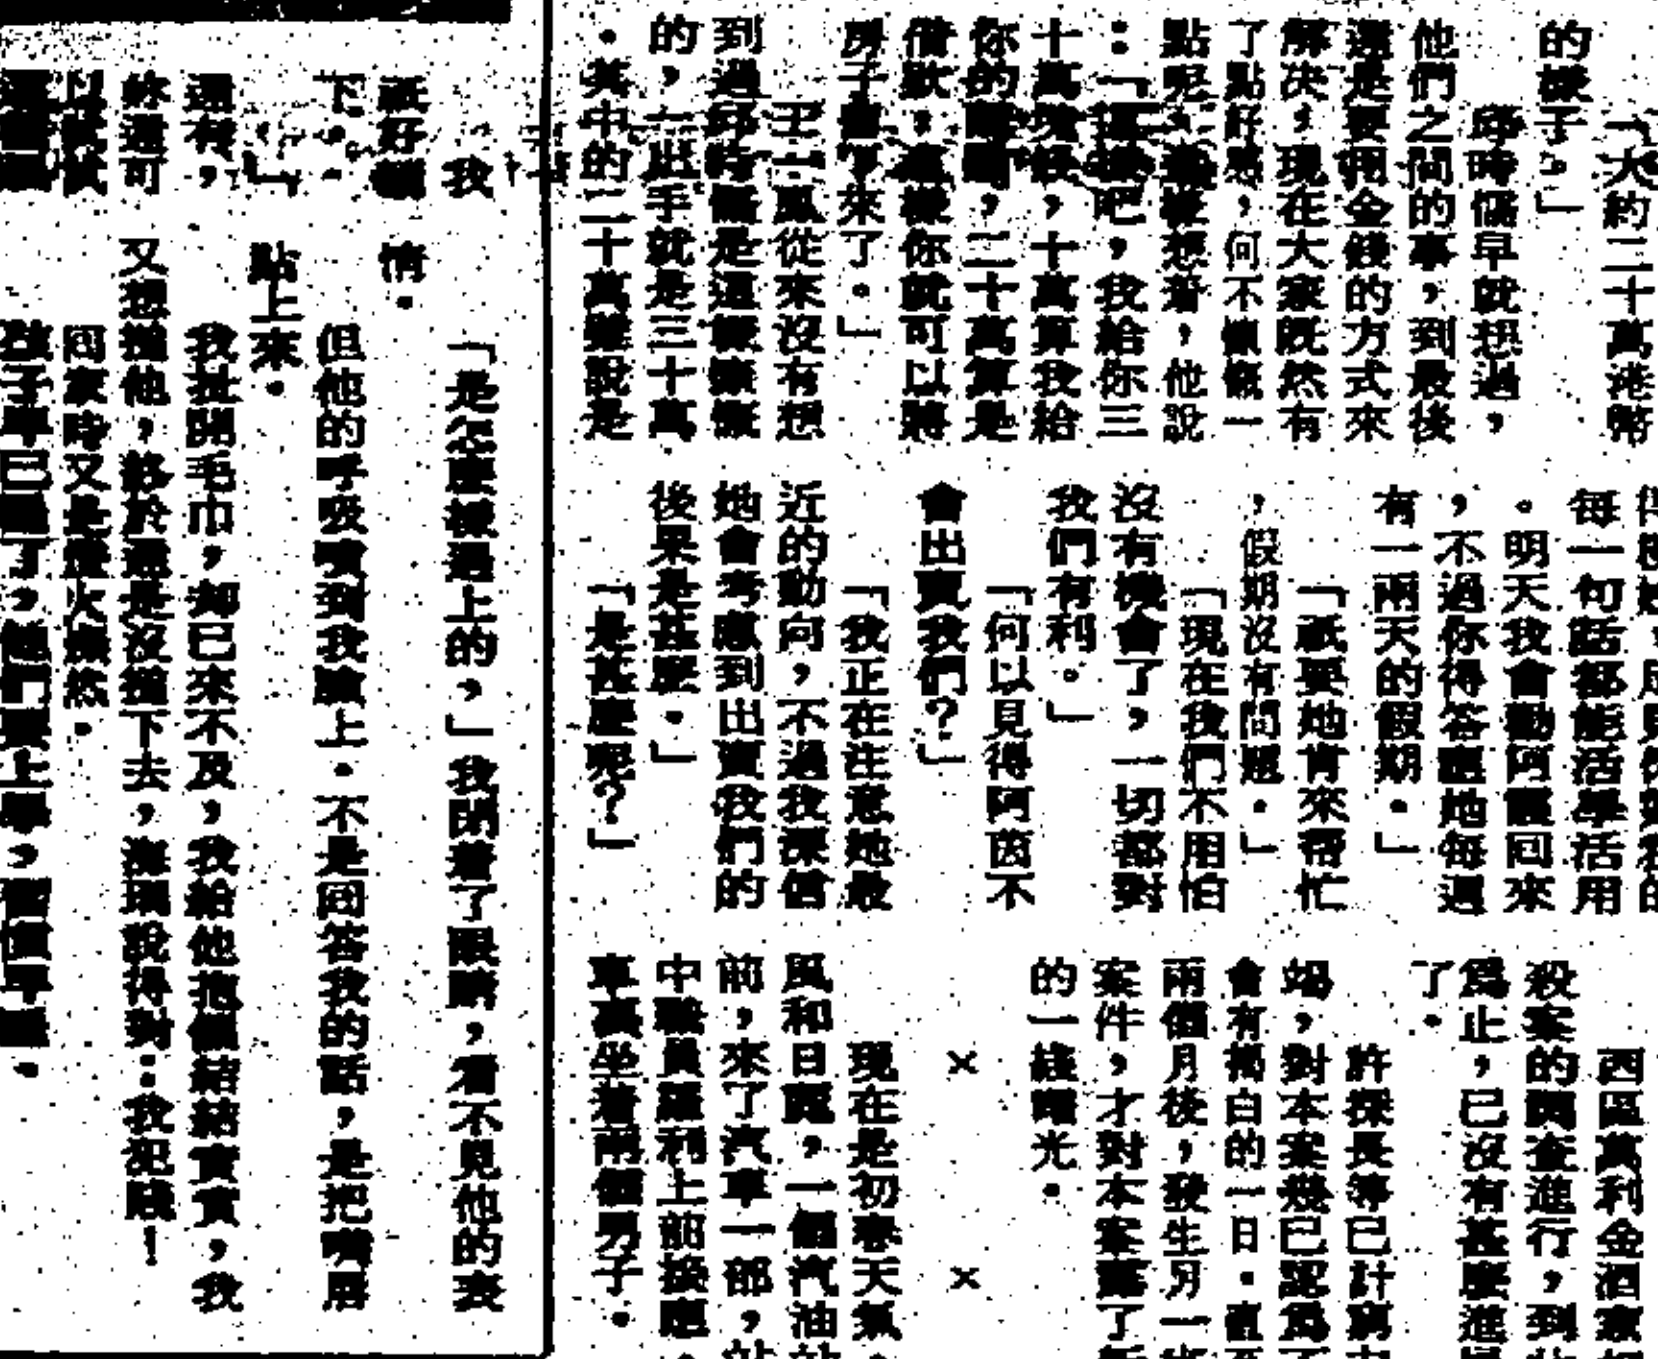 「大約二十萬港幣
的樣子。」
邱時儒早就想過，
他們之間的事，到最後
還是要用金錢的方式來
解決，現在大家既然有
了點好感，何不慷慨一
點呢。這樣想着，他說
：「這樣吧，我給你三
十萬塊錢，十萬算我給
你的，二十萬算是
借欵，這樣你就可以將
房子了來了。」
王一風從來沒有想
到過邱時儒是這樣慷慨
的，一出手就是三十萬
。其中的二十萬雖說是
每一句話都能活學活用
。明天我會勸阿回來
，不過你得答應她每週
有一兩天的假期。」
「祇要她肯來幫忙
，假期沒有問題。」
「現在我們不用怕
沒有機會了，一切都對
我們有利。」
「何以見得阿茵不
會出賣我們？」
「我正在注意她最
近的動向，不過我深信
她會考慮到出賣我們的
後果是甚麼。」
「是甚麼呢？」
西區萬利金酒家
殺案的調查進行，到
爲止，已沒有甚麼進
了。
許探長等已計窮
竭，對本案幾已認爲
會有揭白的一日。直
兩個月後，發生另一
案件，才對本案露了
的一綫曙光。
× ×
現在是初春天氣，
風和日麗，一個汽油站
前，來了汽車一部，站
中職員羅利上前接應。
車裏坐着兩個男子。
我
祇好
下。
」
還有，
你還可
以試試
「是怎麼樣遇上的，」我閉着了眼睛，看不見他的表
情。
但他的呼吸噴到我臉上。不是回答我的話，是把嘴唇
點上來。
我扯開毛巾，却已來不及，我給他抱個結結實實，我
又想摑他，終於還是沒摑下去，撫瑪說得對：我犯賤！
回家時又是燈火煥然。
孩子早已睡了，他們要上學，習慣早睡。